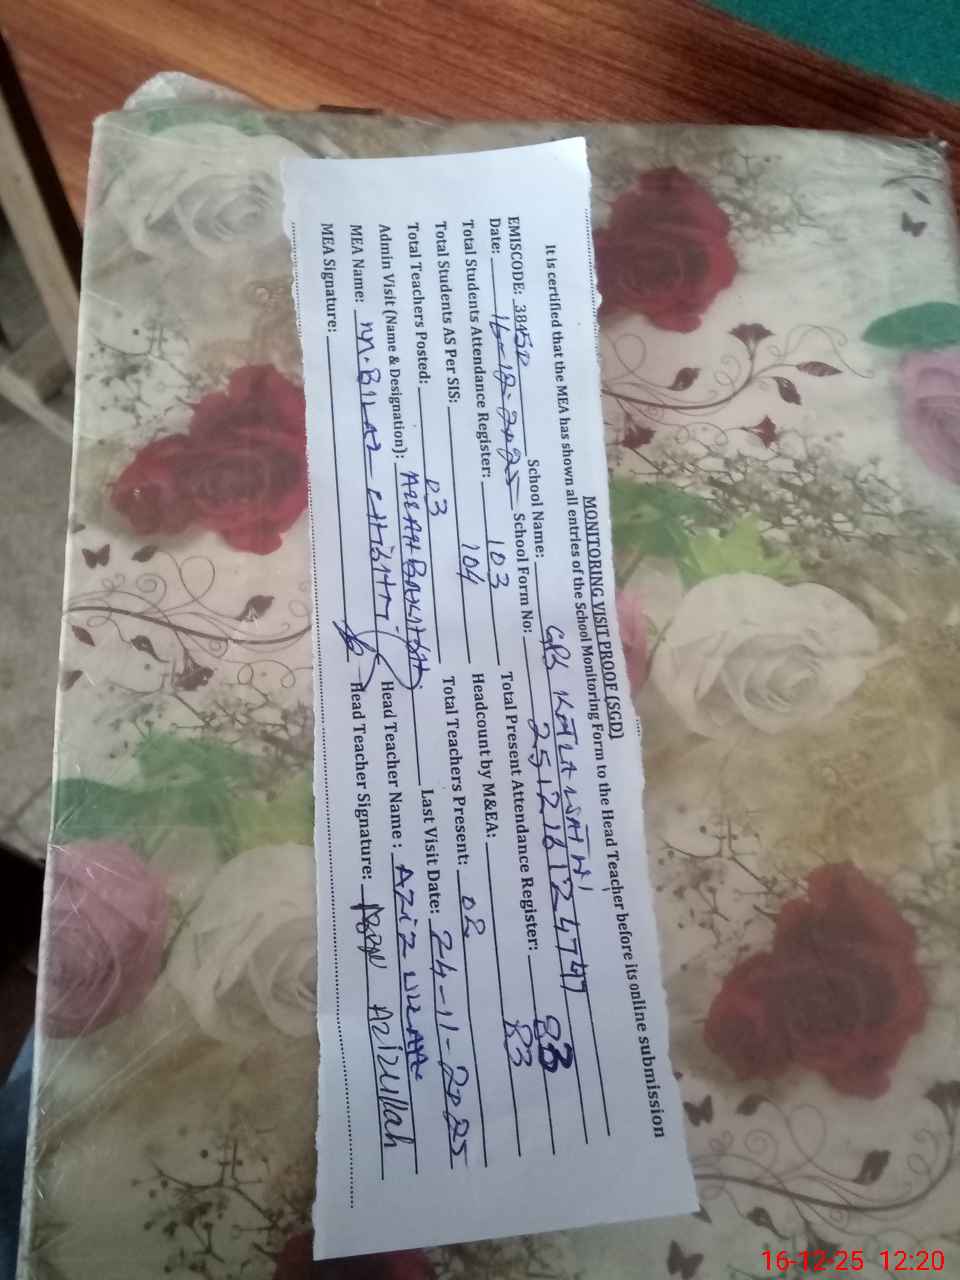 MONITORING VISIT PROOF (SGD)
It is certified that the MEA has shown all entries of the School Monitoring Form to the Head Teacher before its online submission
EMISCODE: 38450 School Name: GPS
Date: 16-12-2025 School Form No: 251216124747
Total Students Attendance Register: 103 Total Present Attendance Register: 83
Total Students AS Per SIS: 104 Headcount by M&EA: 83
Total Teachers Posted: 03 Total Teachers Present: 02
Admin Visit (Name & Designation): Last Visit Date: 24-11-2025
MEA Name: Head Teacher Name: AZIZ ULLAH
MEA Signature: Head Teacher Signature: Azizullah
16-12-25 12:20